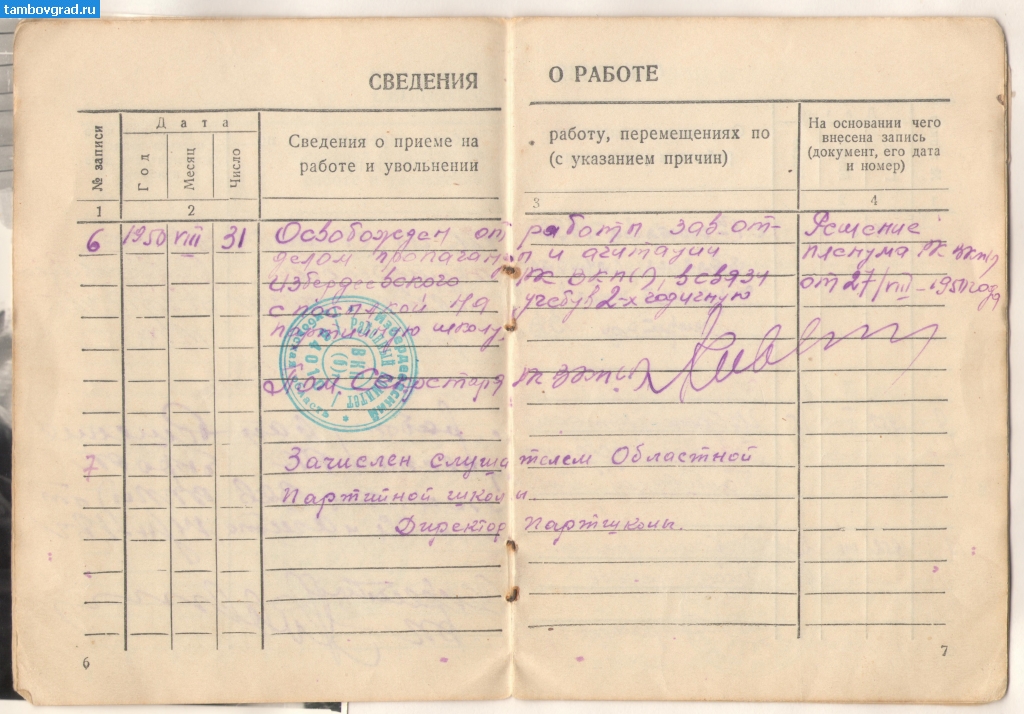 tambovgrad.ru
СВЕДЕНИЯ О РАБОТЕ
№ записи
Дата
Год
Месяц
Число
Сведения о приеме на работу, перемещениях по
работе и увольнении (с указанием причин)
На основании чего
внесена запись
(документ, его дата
и номер)
1 2 3 4
6 1950 VIII 31 Освобожден от работы зав. от-
делом пропаганды и агитации
Избердеевского РК ВКП(б), в связи
с посылкой на учебу в 2-х годичную
партийную школу.
Решение
пленума РК ВКП(б)
от 27/VIII-1950 года
Пом Секретаря РК ВКП(б)
Избердеевский
ВКП
(б)
область
7 Зачислен слушателем Областной
Партийной школы
Директор Партшколы.
6 7